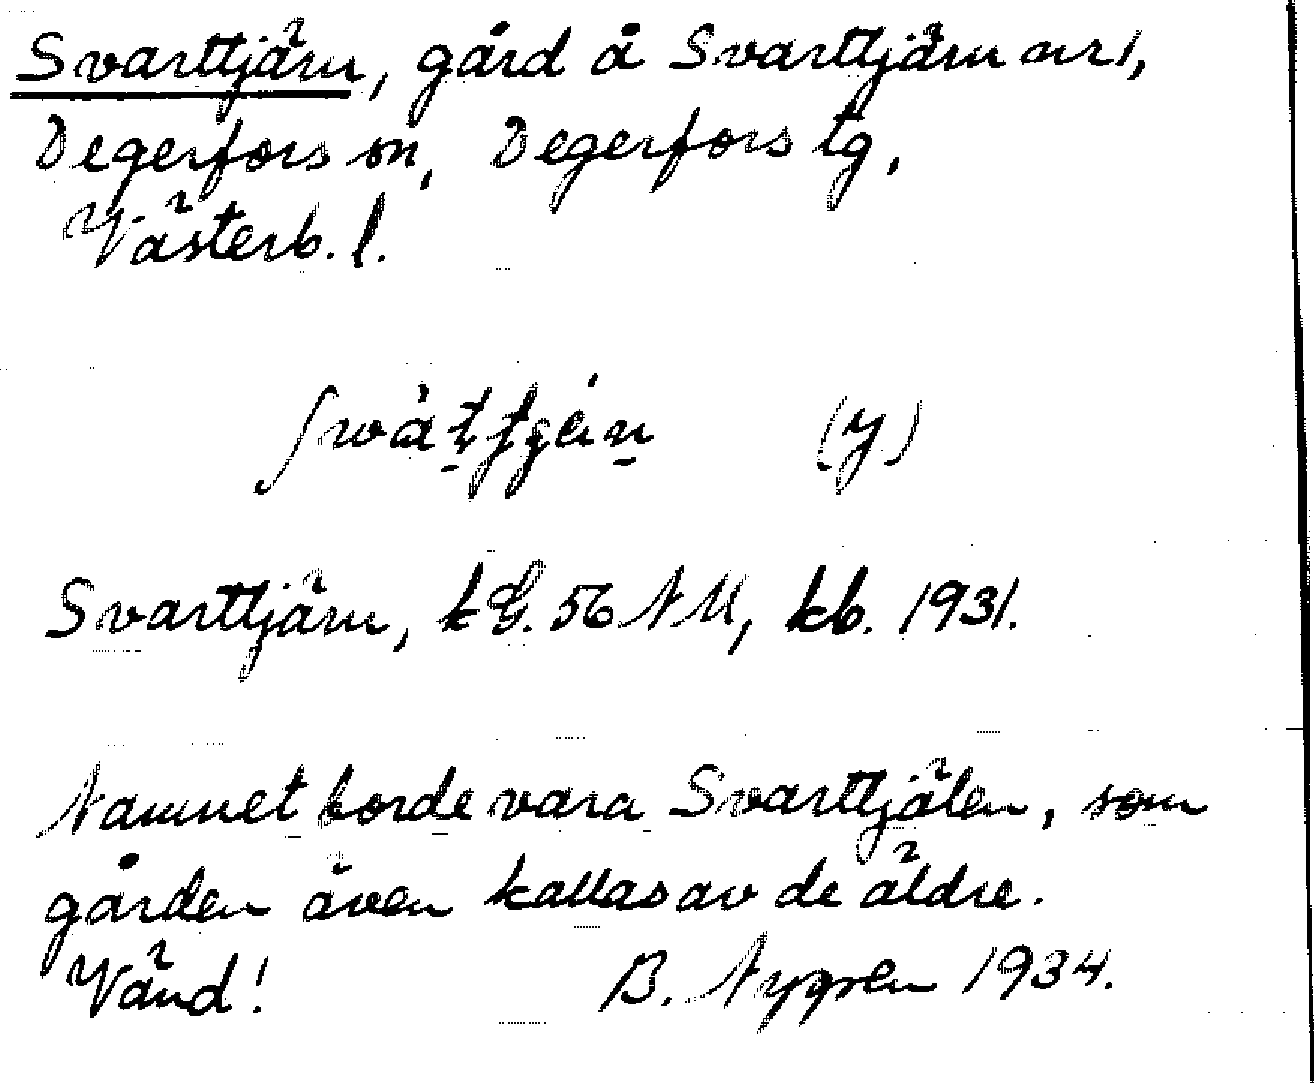 Svarttjärn, gård å Svarttjärn nr 1,
Degerfors sn, Degerfors tg,
Västerb. l.
(y)
Svarttjärn, k G. 56 NM, kb. 1931.
Namnet borde vara Svarttjälen, som
gården även kallas av de äldre.
Vänd! B. Nygren 1934.